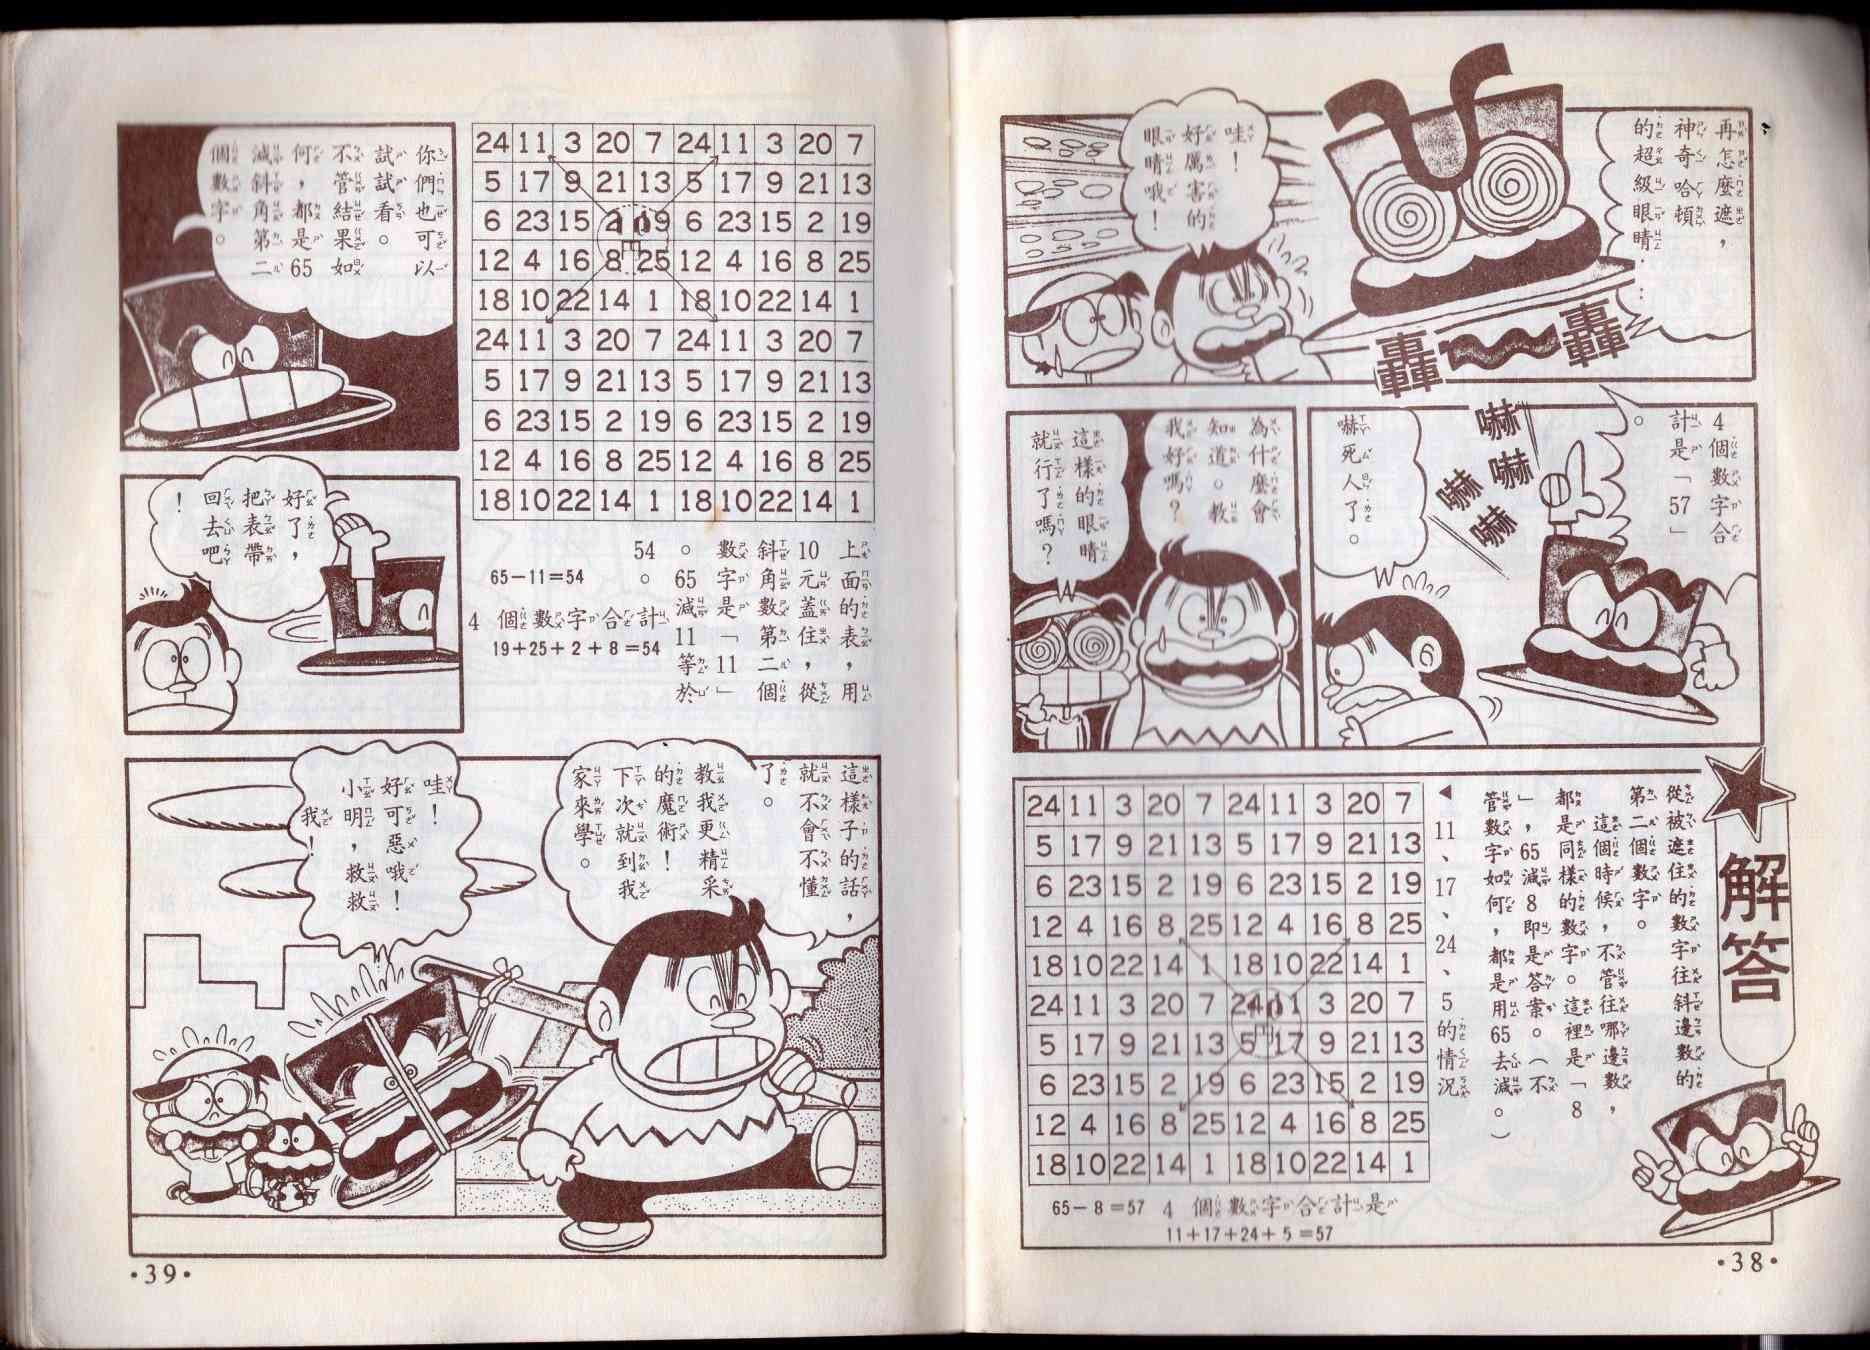 再怎麼遮，
神奇哈頓
的超級眼睛．
哇！
好厲害的
眼睛哦！
轟～～轟
4個數字合
計是「57」
。
嚇嚇嚇嚇
嚇死人了。
為什麼會
知道。教
我好嗎？
這樣的眼睛
就行了嗎？
解答
從被遮住的數字往斜邊數的
第二個數字。
這個時候，不管往哪邊數，
都是同樣的數字。這裡是「8
」，65減8即是答案。（不
管數字如何，都是用65去減。）
◀11、17、24、5的情況
24 11 3 20 7 24 11 3 20 7
5 17 9 21 13 5 17 9 21 13
6 23 15 2 19 6 23 15 2 19
12 4 16 8 25 12 4 16 8 25
18 10 22 14 1 18 10 22 14 1
24 11 3 20 7 24 11 3 20 7
5 17 9 21 13 5 17 9 21 13
6 23 15 2 19 6 23 15 2 19
12 4 16 8 25 12 4 16 8 25
18 10 22 14 1 18 10 22 14 1
65－8＝57 4個數字合計是
11＋17＋24＋5＝57
•38•
24 11 3 20 7 24 11 3 20 7
5 17 9 21 13 5 17 9 21 13
6 23 15 2 19 6 23 15 2 19
12 4 16 8 25 12 4 16 8 25
18 10 22 14 1 18 10 22 14 1
24 11 3 20 7 24 11 3 20 7
5 17 9 21 13 5 17 9 21 13
6 23 15 2 19 6 23 15 2 19
12 4 16 8 25 12 4 16 8 25
18 10 22 14 1 18 10 22 14 1
上面的表，用
10元蓋住，從
斜角數第二個
數字是「11」
。65減11等於
54。
65－11＝54
4個數字合計
19＋25＋2＋8＝54
你們也可以
試試看。
不管結果如
何，都是65
減斜角第二
個數字。
好了，
把表帶
回去吧
！
這樣子的話，
就不會不懂
了。
教我更精采
的魔術！
下次就到我
家來學。
哇！
好可惡哦！
小明，救救
我！
•39•